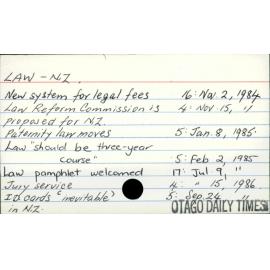 LAW - N.Z.
New system for legal fees 16: Nov 2, 1984
Law Reform Commission is 4: Nov 15, "
proposed for N.Z.
Paternity law moves 5: Jan. 8, 1985.
Law "should be three-year
course" 5: Feb 2, 1985
Law pamphlet welcomed 17: Jul 9, "
Jury service 4: " 15, 1986
ID cards "inevitable" 5: Sep. 24 "
in N.Z.
OTAGO DAILY TIMES